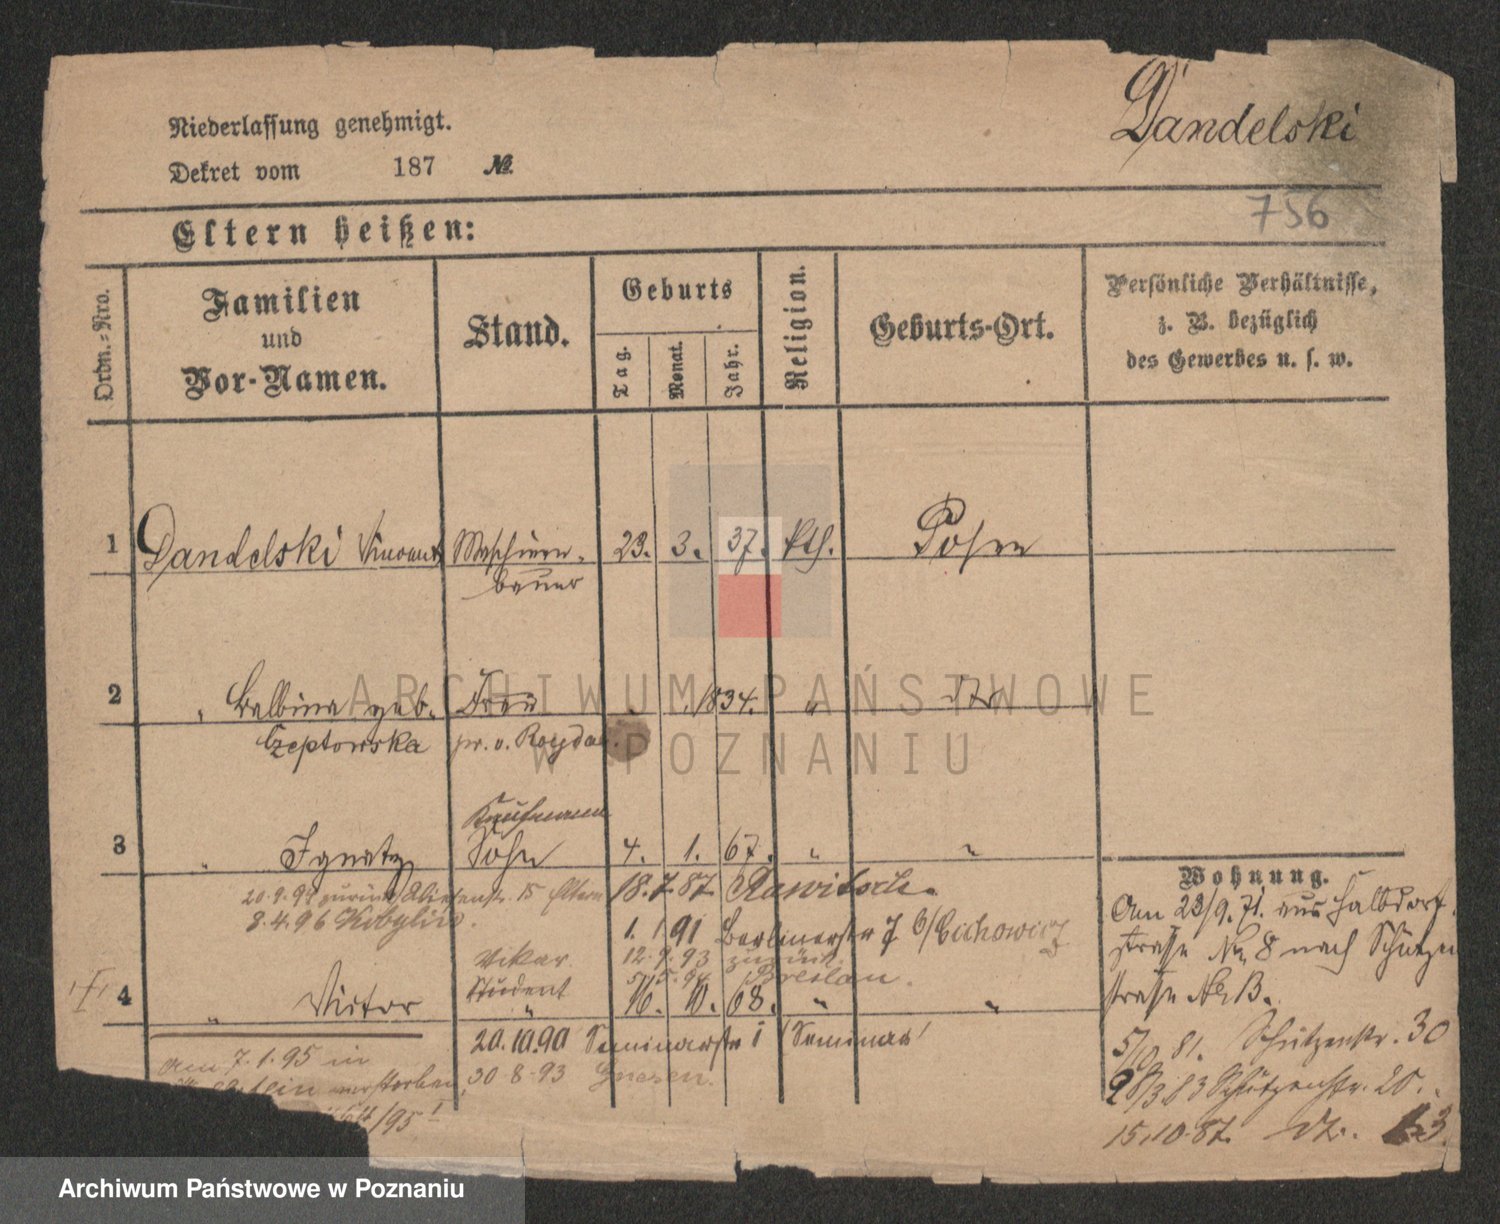 Dandelski
Niederlassung genehmigt.
Dekret vom 187 №.
756
Eltern heißen:
Ordn.-Nro.
Familien
und
Vor-Namen.
Stand.
Geburts
Tag.
Monat.
Jahr.
Religion.
Geburts-Ort.
Persönliche Verhältnisse,
z. B. bezüglich
des Gewerbes u. s. w.
1 Dandelski Vincent Maschinen- 23. 3. 37. kth. Posen
bauer
2 " Balbina geb. Frau 1834. " dto
Czeptowska pr. v.
Kaufmann
3 " Ignatz Sohn 4. 1. 67. " "
20.9.94 zurück 15 Eltern 18.7.87. Rawitsch.
8.4.96 Kobylin.
1. 1. 91 Berlinerstr 7 b/Cichowicz
Vikar 12.9.93 zurück.
Student Breslau.
4 " Victor " 16. 10. 68. " "
20.10.90 Seminarstr 1 (Seminar)
30.8.93 Gnesen.
Am 7.1.95 in
verstorben
/95
Wohnung.
Am 23/9. 71. aus Halbdorf-
straße No 8 nach Schützen
straße No 13.
5/10 81. Schützenstr. 30
28/3.83 Schützenstr. 20.
15.10.87. dto.
ARCHIWUM PAŃSTWOWE
W POZNANIU
Archiwum Państwowe w Poznaniu